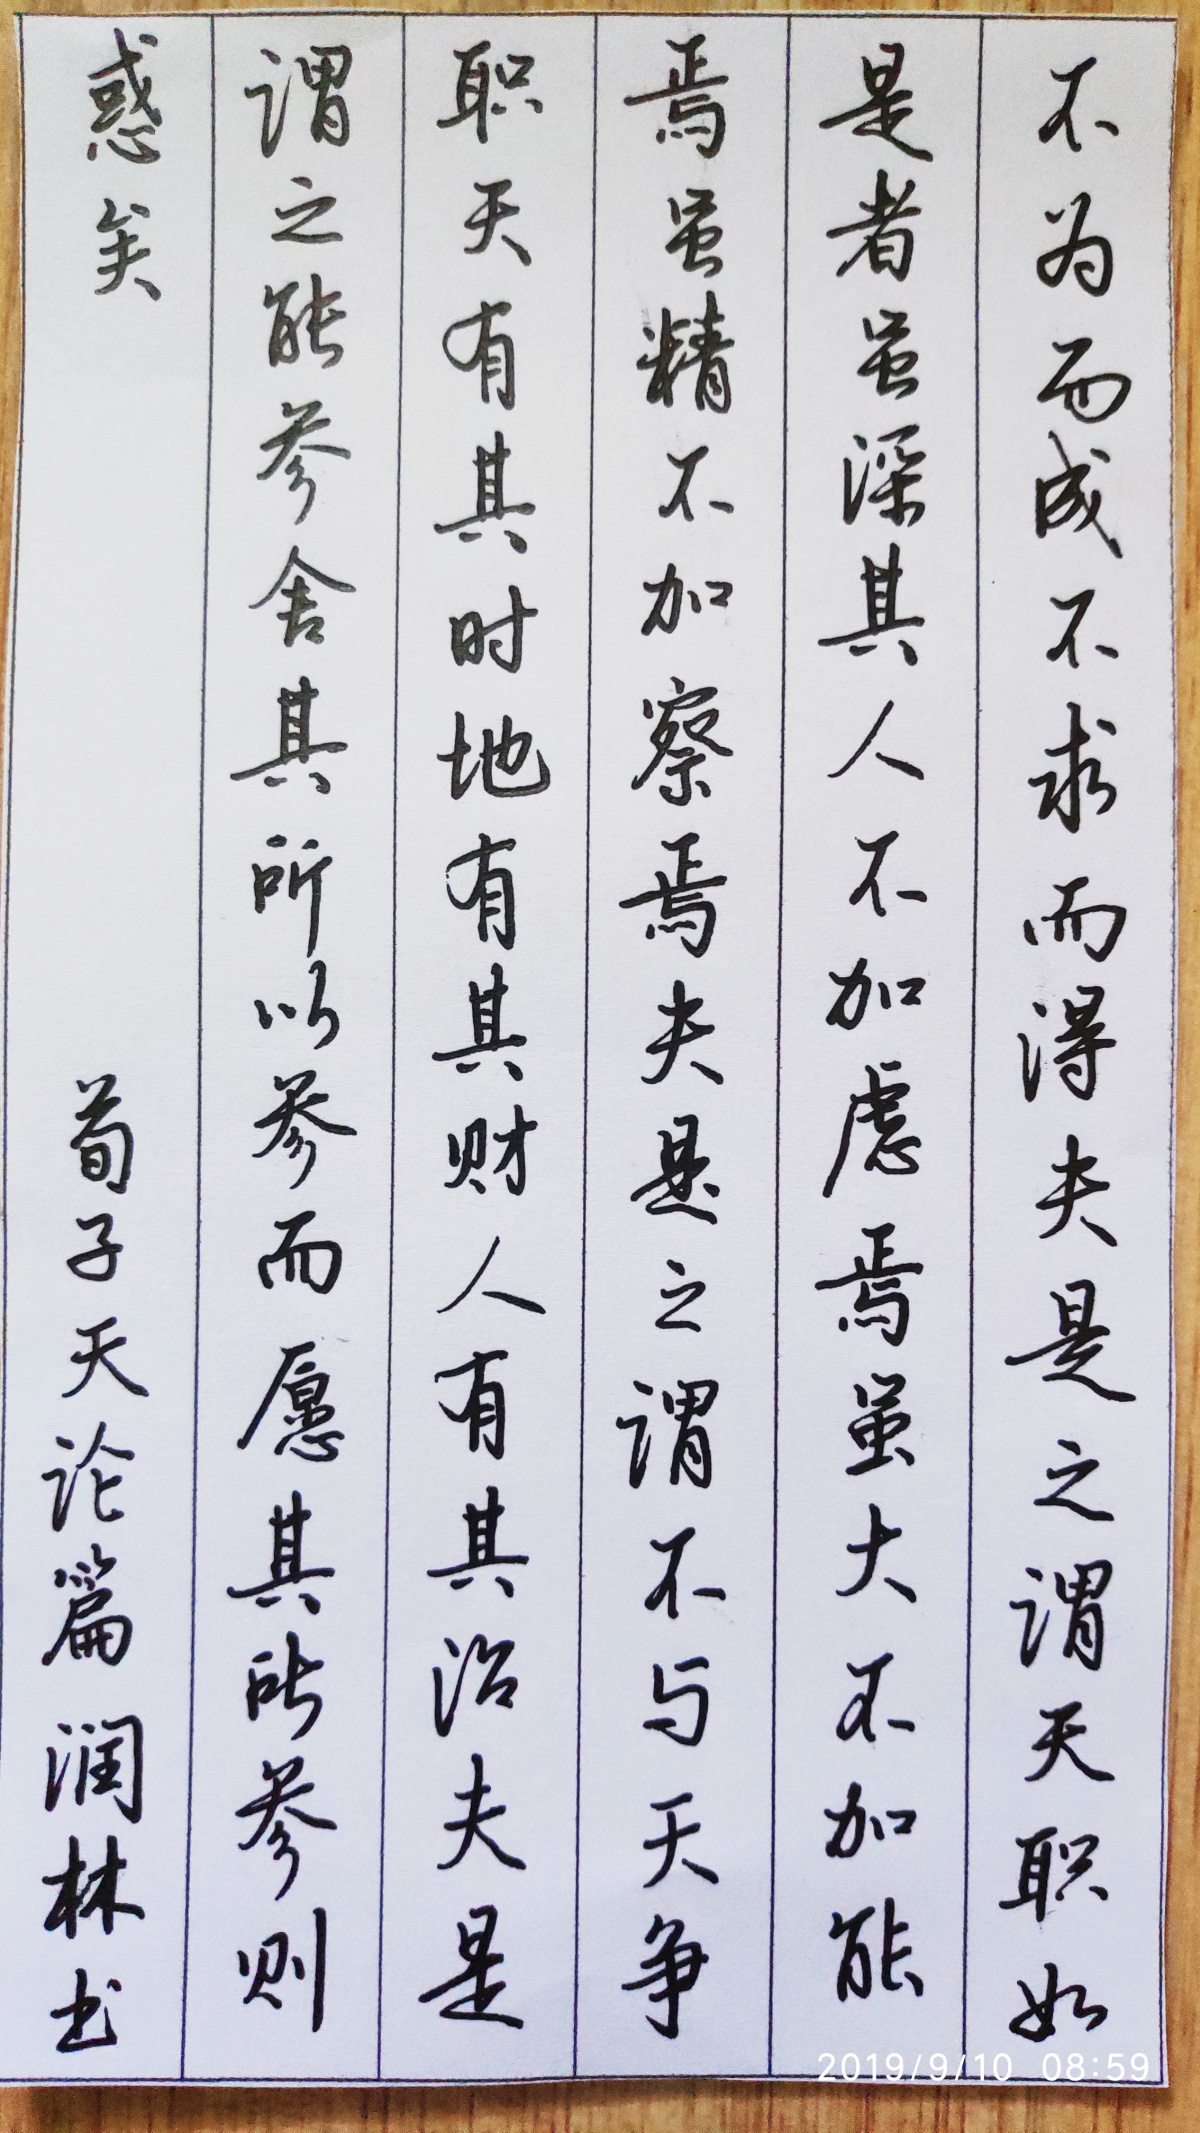 不为而成不求而得夫是之谓天职如
是者虽深其人不加虑焉虽大不加能
焉虽精不加察焉夫是之谓不与天争
职天有其时地有其财人有其治夫是
谓之能参舍其所以参而愿其所参则
惑矣
荀子天论篇 润林书
2019/9/10 08:59